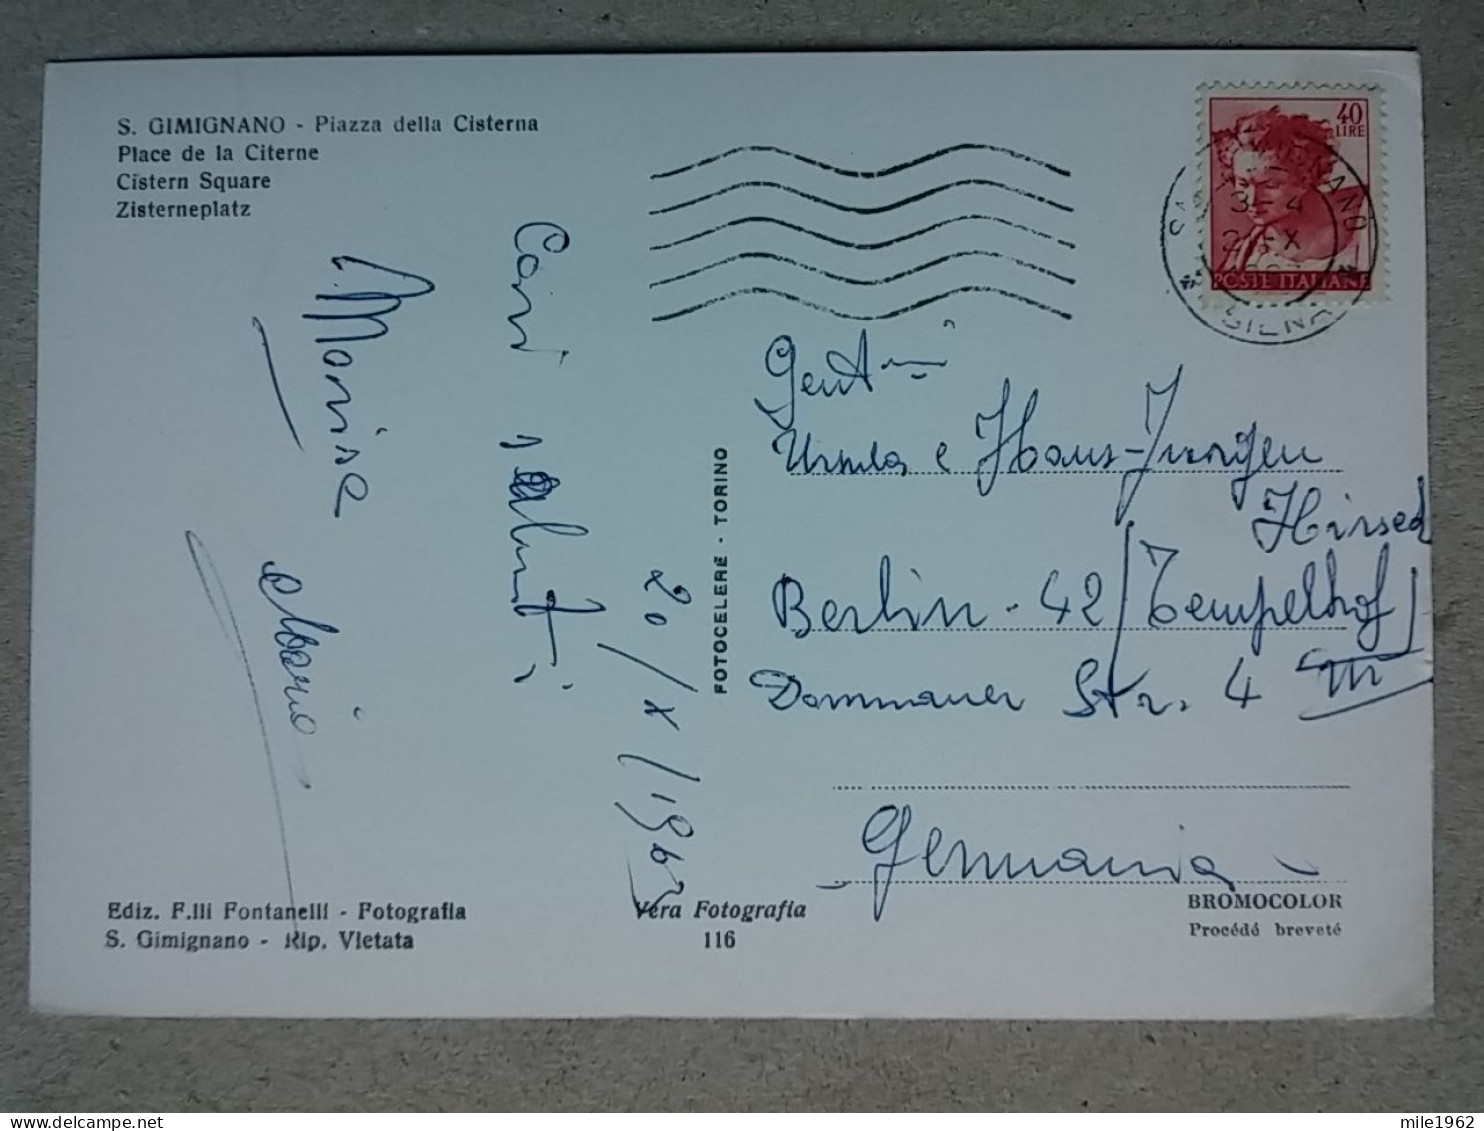 S. GIMIGNANO - Piazza della Cisterna
Place de la Citerne
Cistern Square
Zisterneplatz
Cari saluti
20/X/1963
Marisa
Mario
FOTOCELERE - TORINO
40
LIRE
POSTE ITALIANE
3-4
SIENA
Gent.mi
Ursula e Hans-Jurgen
Berlin - 42/Tempelhof/
Dommauer Str. 4
Germania
Ediz. F.lli Fontanelli - Fotografia
S. Gimignano - Rip. Vietata
Vera Fotografia
116
BROMOCOLOR
Procédé breveté
mile1962